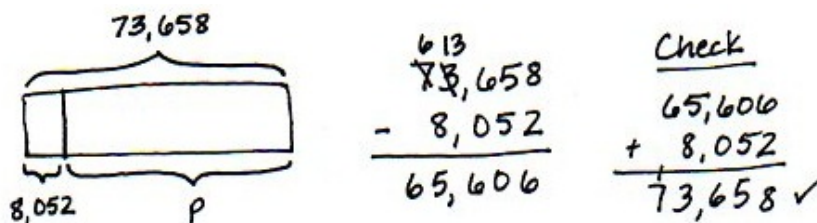 73,658
8,052 p
6 13
73,658
- 8,052
65,606
Check
65,606
+ 8,052
1
73,658 ✓